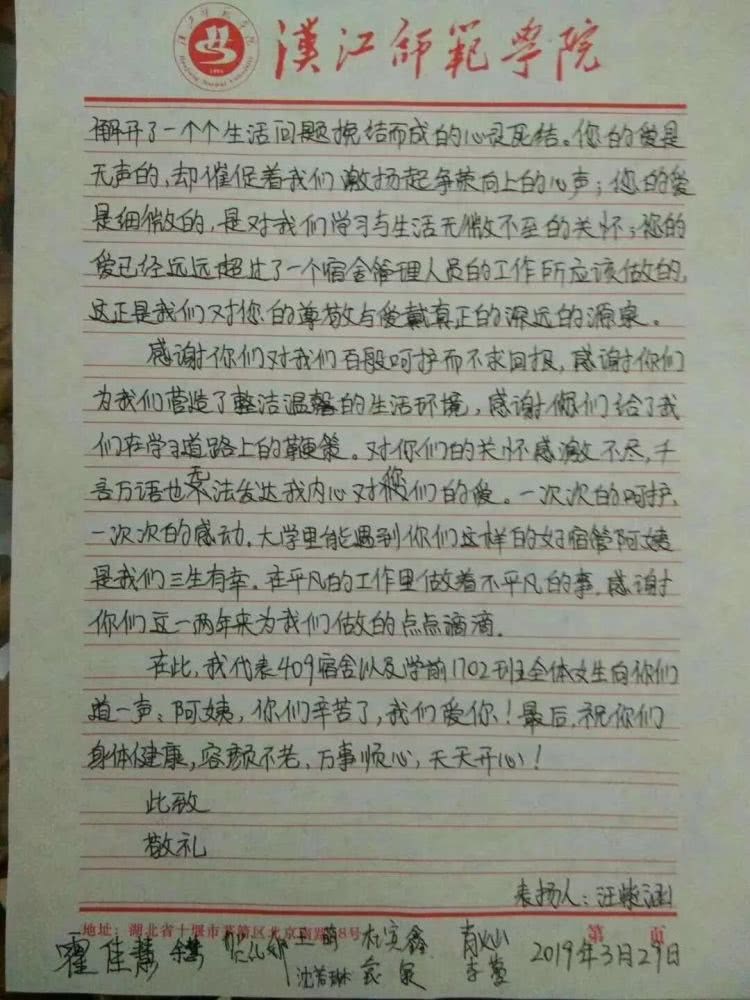 漢江師範學院
解开了一个个生活问题挽结而成的心灵死结。您的爱是
无声的，却催促着我们激扬起争荣向上的心声；您的爱
是细微的，是对我们学习与生活无微不至的关怀；您的
爱已经远远超过了一个宿舍管理人员的工作所应该做的，
这正是我们对您的尊敬与爱戴真正的深远的源泉。
感谢你们对我们百般呵护而不求回报，感谢你们
为我们营造了整洁温馨的生活环境，感谢你们给了我
们在学习道路上的鞭策。对你们的关怀感激不尽，千
言万语也无法发达我内心对你们的爱。一次次的呵护，
一次次的感动，大学里能遇到你们这样的好宿管阿姨
是我们三生有幸。在平凡的工作里做着不平凡的事，感谢
你们这一两年来为我们做的点点滴滴。
在此，我代表409宿舍以及学前1702班全体女生向你们
道一声：阿姨，你们辛苦了，我们爱你！最后，祝你们
身体健康，容颜不老，万事顺心，天天开心！
此致
敬礼
表扬人：汪
地址：湖北省十堰市茅箭区北京南路18号 第 页
霍佳慧 2019年3月29日
沈若琳 袁泉 李莹